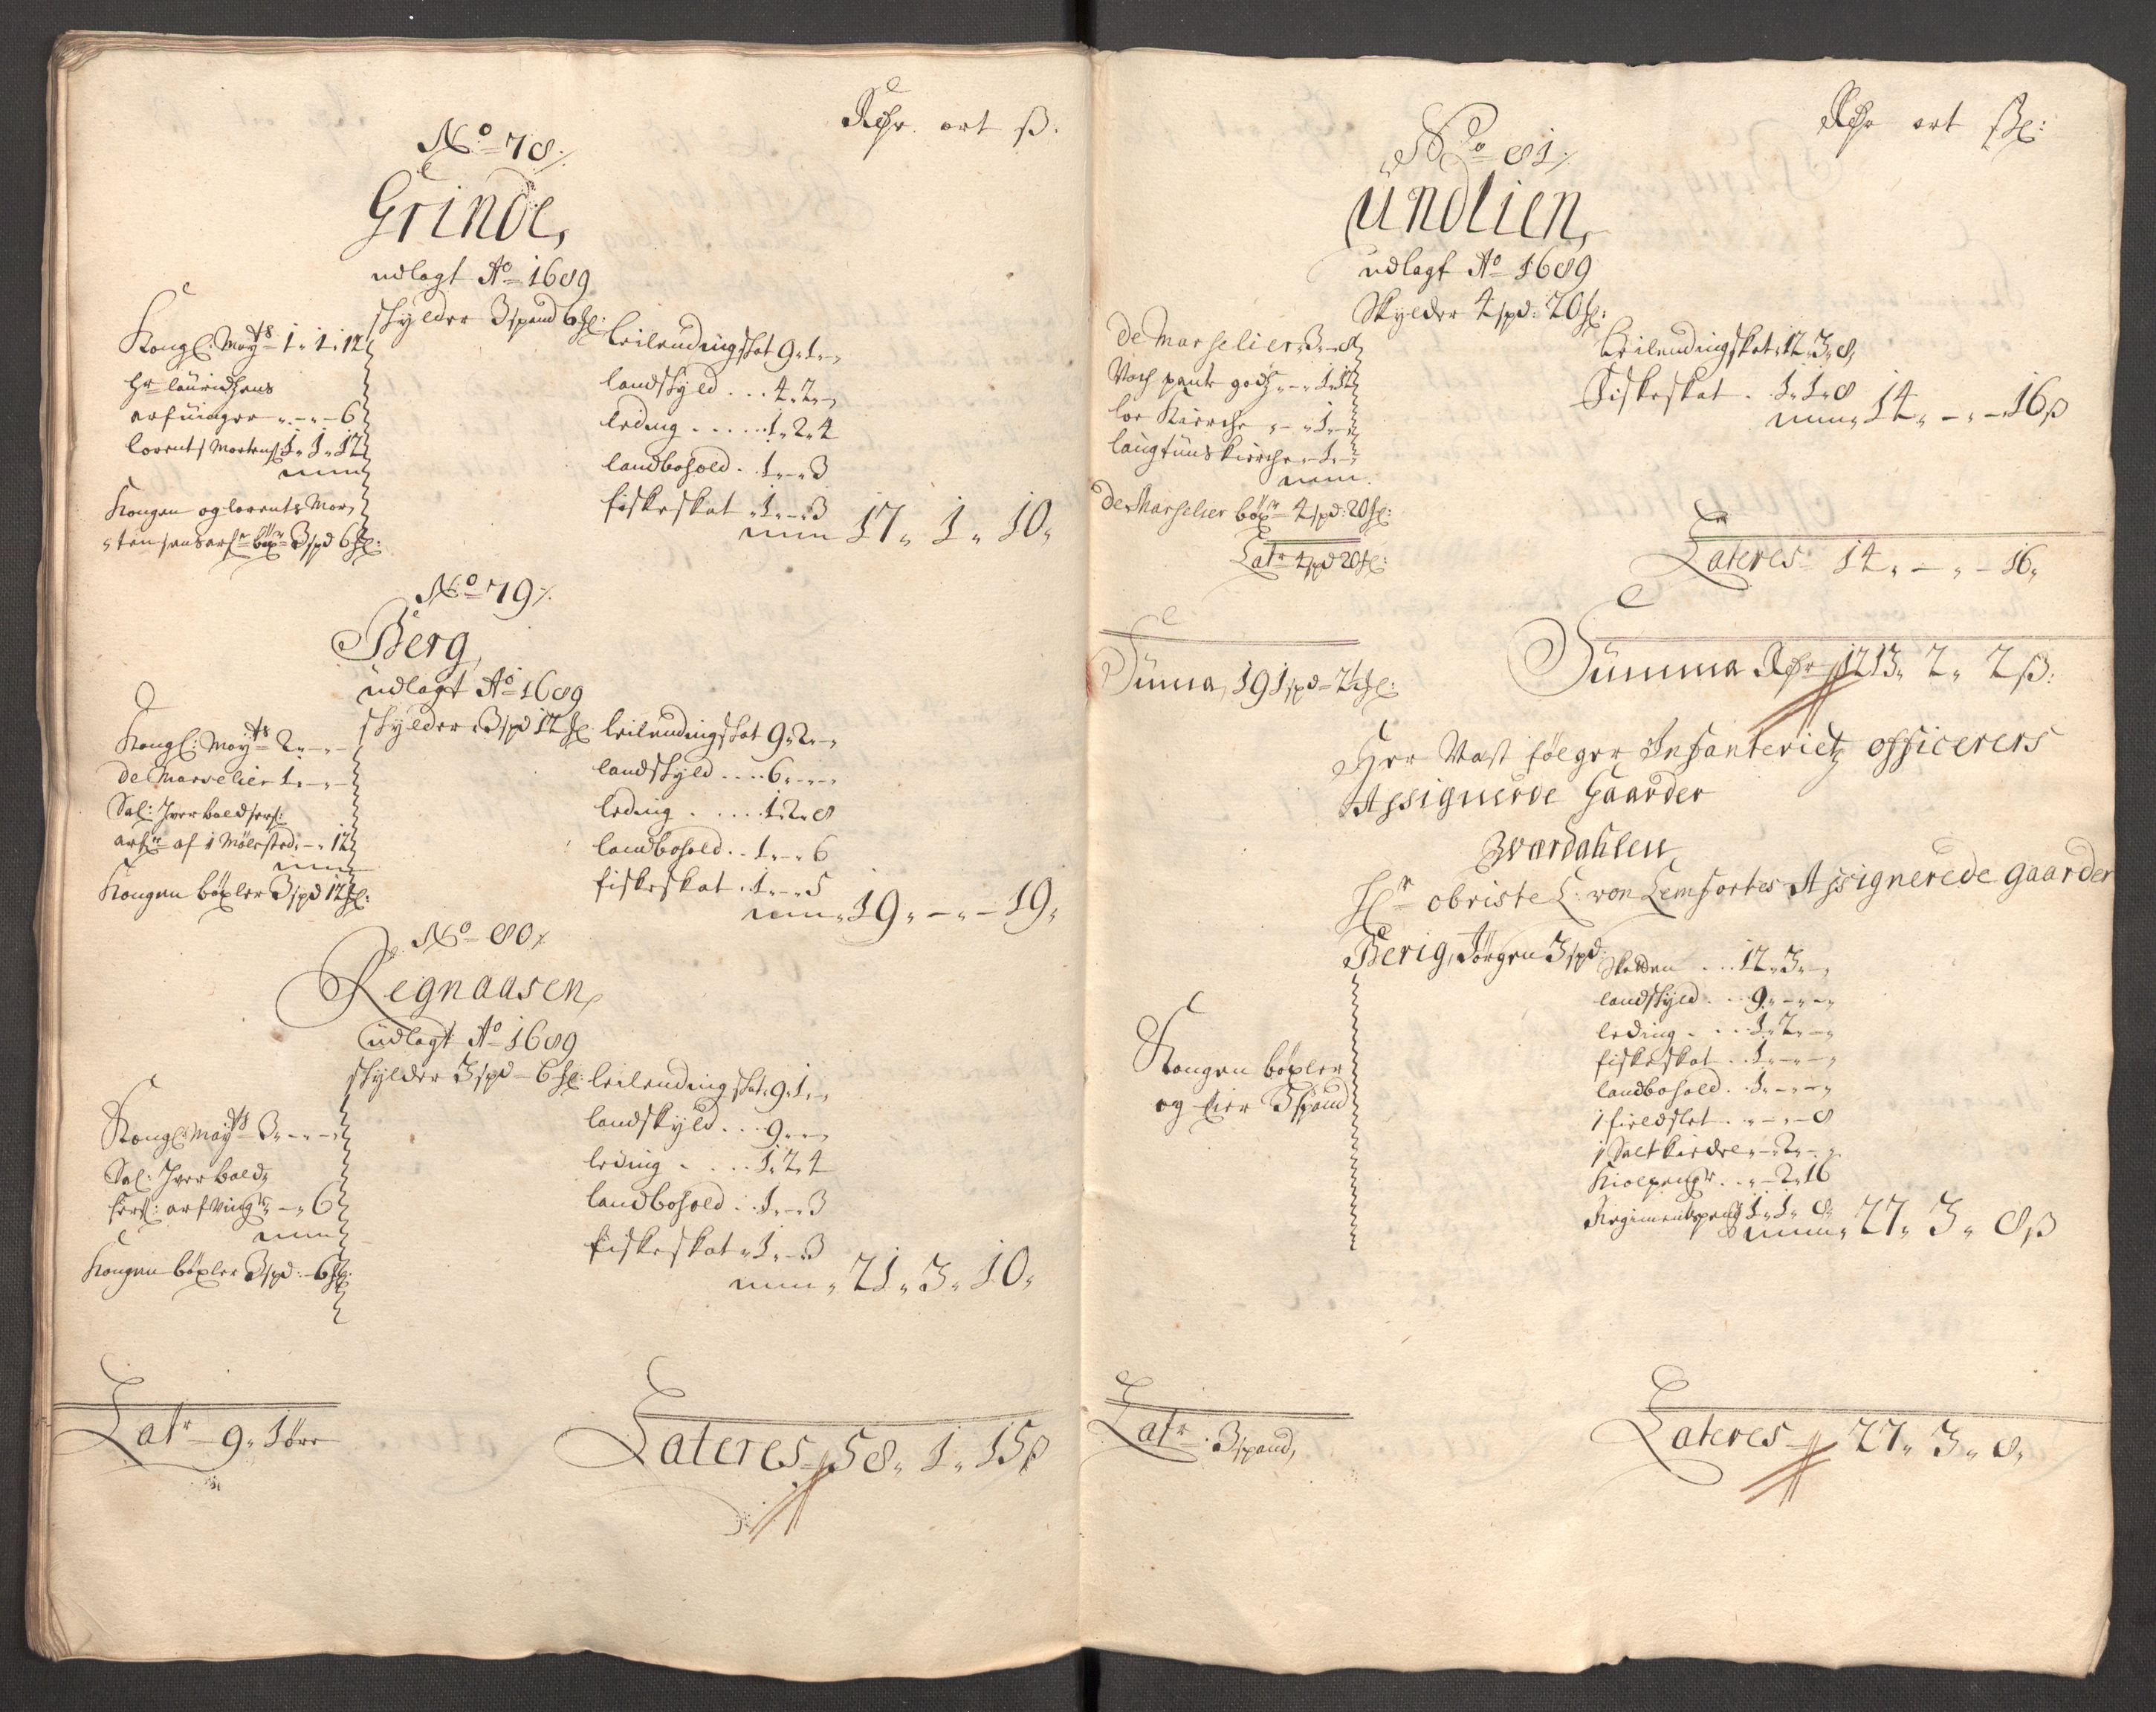 Rdr. ort ß.
No 78 ⁒
Grinde,
udlagt Ao 1689
skylder 3 spand 6 ħl:
Kongl: Mayts 1 " 1 " 12
Hr Lauridzens
arfuinger " - " - 6
Lorents Mortens: 1 " 1 " 12
nem
Kongen og Lorents Mor,
"tensens arfr böxr 3 spd 6 ħl:
Leilendingskat 9 " 1 " - "
landskyld . . . 4 " 2 " - "
leding . . . . . 1 " 2 " 4
landbohold . . 1 " - " 3
fiskeskat " 1 " - " 3
nem 17 " 1 " 10 "
No 79 ⁒
Berg,
udlagt Ao 1689
skylder 3 spd 12 ħl
Kongl: Mayts 2 " - " -
de Marselier 1 " - " -
Sal: Iver Boldsers:
arfr af 1 Mölested " - " 12
nem
Kongen böxler 3 spd 12 ħl:
leilendingskat 9 " 2 " - "
landskyld . . . . 6 " - " - "
leding . . . . . 1 " 2 " 8
landbohold . . 1 " - " 6
fiskeskat . 1 " - " 5
nem " 19 " - " - 19 "
No 80 ⁒
Regnaasen,
udlagt Ao 1689
skylder 3 spd - 6 ħl:
Kongl: Mayts 3 " - " - "
Sal: Iver Bold,
sers: arfving: " - " 6
nem
Kongen böxler 3 spd: - 6 ħl:
leilendingskat " 9 " 1 " - "
landskyld . . . 9 " - " - "
leding . . . . 1 " 2 " 4
landbohold . . 1 " - " 3
fiskeskat " 1 " - " 3
nem " 21 " 3 " 10 "
Latr 9 " 1 öre
Lateres 58 " 1 " 15 ß
Rdr ort ßl:
No 81 ⁒
Undlien,
udlagt Ao 1689
Skylder 4 spd: 20 ħl:
de Marselier " 3 " - 8
pante godz " - " 1 " 12
Kierche " - " 1 " -
laugtuns kirche " - 1 " -
nem.
de Marselier böxr 4 spd: 20 ħl:
Latr 4 spd 20 ħl:
Leilendingskat " 12 " 3 " 8 "
Fiskeskat . 1 " 1 " 8
nem " 14 " - " - 16 ß
Lateres 14 " - " - 16 "
Suma, 191 spd - 21 ħl:
Summa Rdr 1213 " 2 " 2 ß.
Her Nast fölger Infanterietz officerers
Assignerede Gaarder
Wærdahlen
Hr obriste L: von Lemfortes Assignerede gaarder
Berig, Jörgen 3 spd:
Kongen böxler
og Eier 3 spand
Skatten . . . 12 " 3 " - "
landskyld . . . 9 " - " - "
leding . . . . 1 " 2 " - "
fiskeskat . . 1 " - " - "
landbohold . . 1 " - " - "
1 fieldslet . . " - " - 8
1 Saltkiedel " - 2 " - "
Kiolpengr . . " - 2 " 16
Regimentspeng 1 " 1 " 8 "
nem " 27 " 3 " 8 ß
Latr . 3 spand,
Lateres 27 " 3 " 8 "